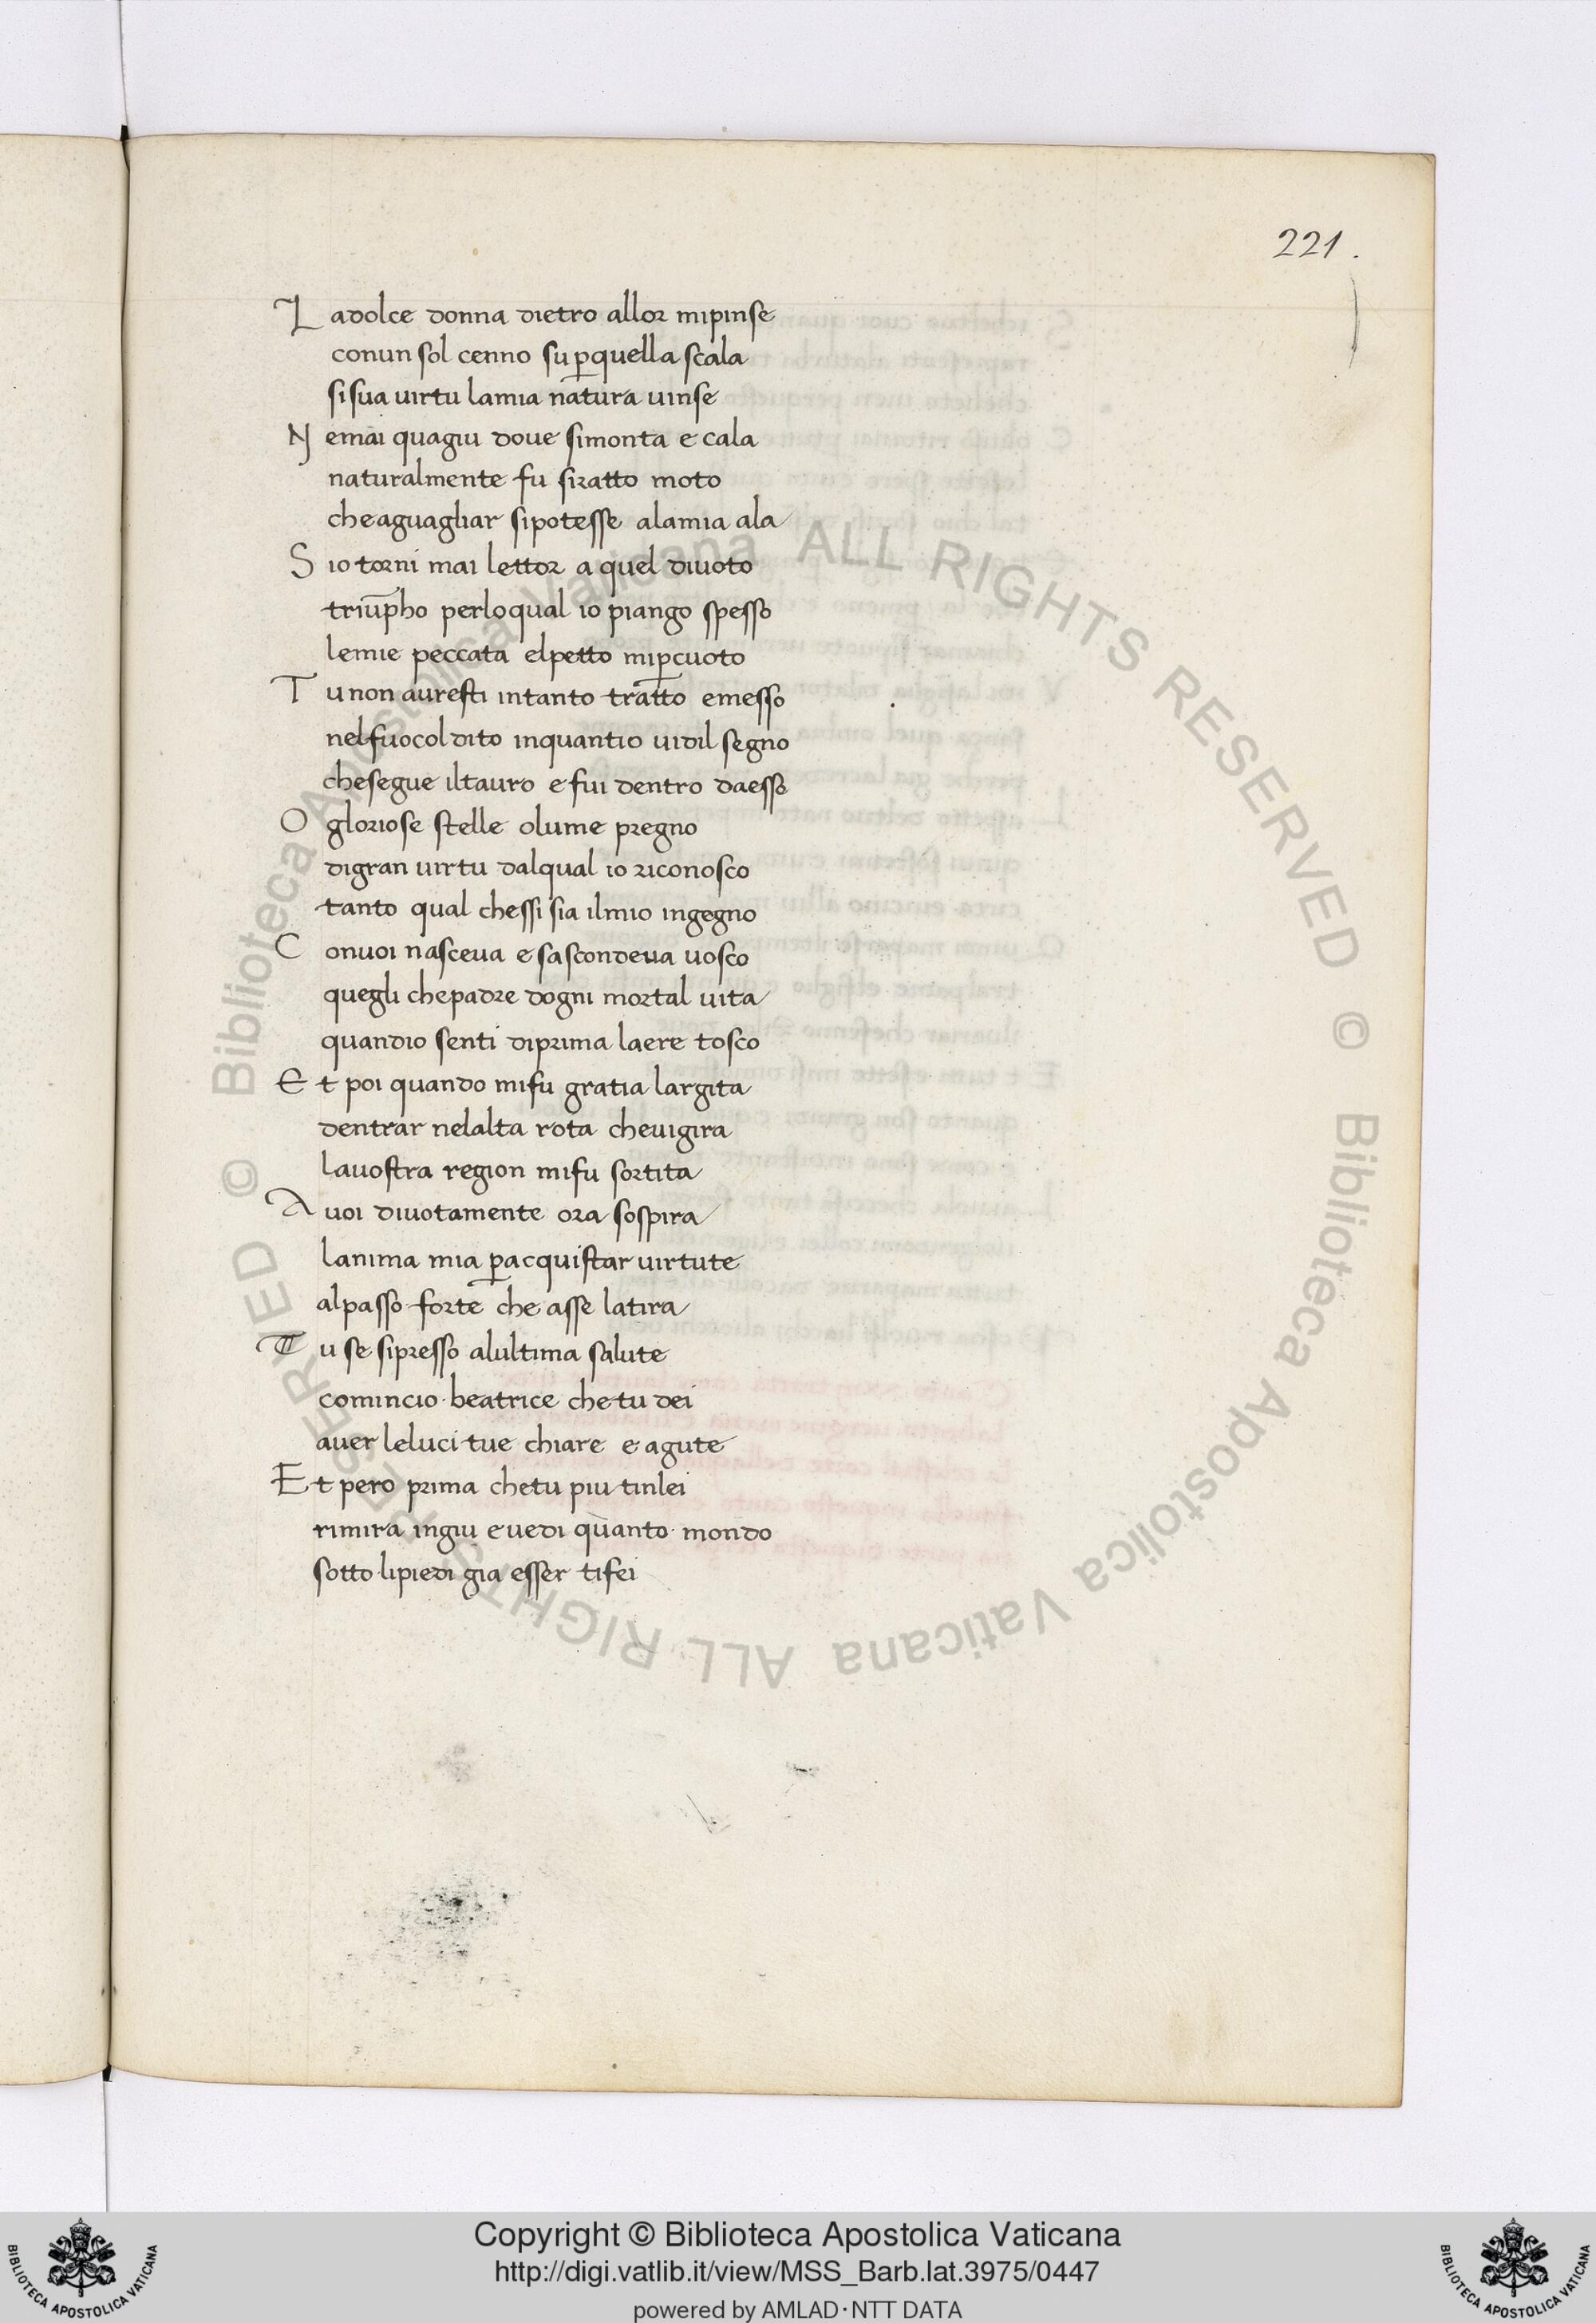 221.
L adolce donna dietro allor mipinse
conun sol cenno sup̱quella scala
sisua uirtu lamia natura uinse
N emai quagiu doue simonta e cala
naturalmente fu siratto moto
cheaguagliar sipotesse alamia ala
S io torni mai lettor a quel diuoto
triūpho perloqual io piango spesso
lemie peccata elpetto mip̱cuoto
T u non auresti intanto tratto emesso
nelfuocol dito inquantio uidil segno
chesegue iltauro e fui dentro daesso
O gloriose stelle olume pregno
digran uirtu dalqual io riconosco
tanto qual chessi sia ilmio ingegno
C onuoi nasceua e sascondeua uosco
quegli chepadre dogni mortal uita
quandio senti diprima laere tosco
E t poi quando mifu gratia largita
dentrar nelalta rota cheuigira
lauostra region mifu sortita
A uoi diuotamente ora sospira
lanima mia p̱acquistar uirtute
alpasso forte che asse latira
T u se sipresso alultima salute
comincio beatrice chetu dei
auer leluci tue chiare e agute
E t pero prima chetu piu tinlei
rimira ingiu euedi quanto mondo
sotto lipiedi gia esser tifei
© Biblioteca Apostolica Vaticana ALL RIGHTS RESERVED © Biblioteca Apostolica Vaticana ALL RIGHTS RESERVED
Copyright © Biblioteca Apostolica Vaticana
http://digi.vatlib.it/view/MSS_Barb.lat.3975/0447
powered by AMLAD·NTT DATA
BIBLIOTECA APOSTOLICA VATICANA
BIBLIOTECA APOSTOLICA VATICANA